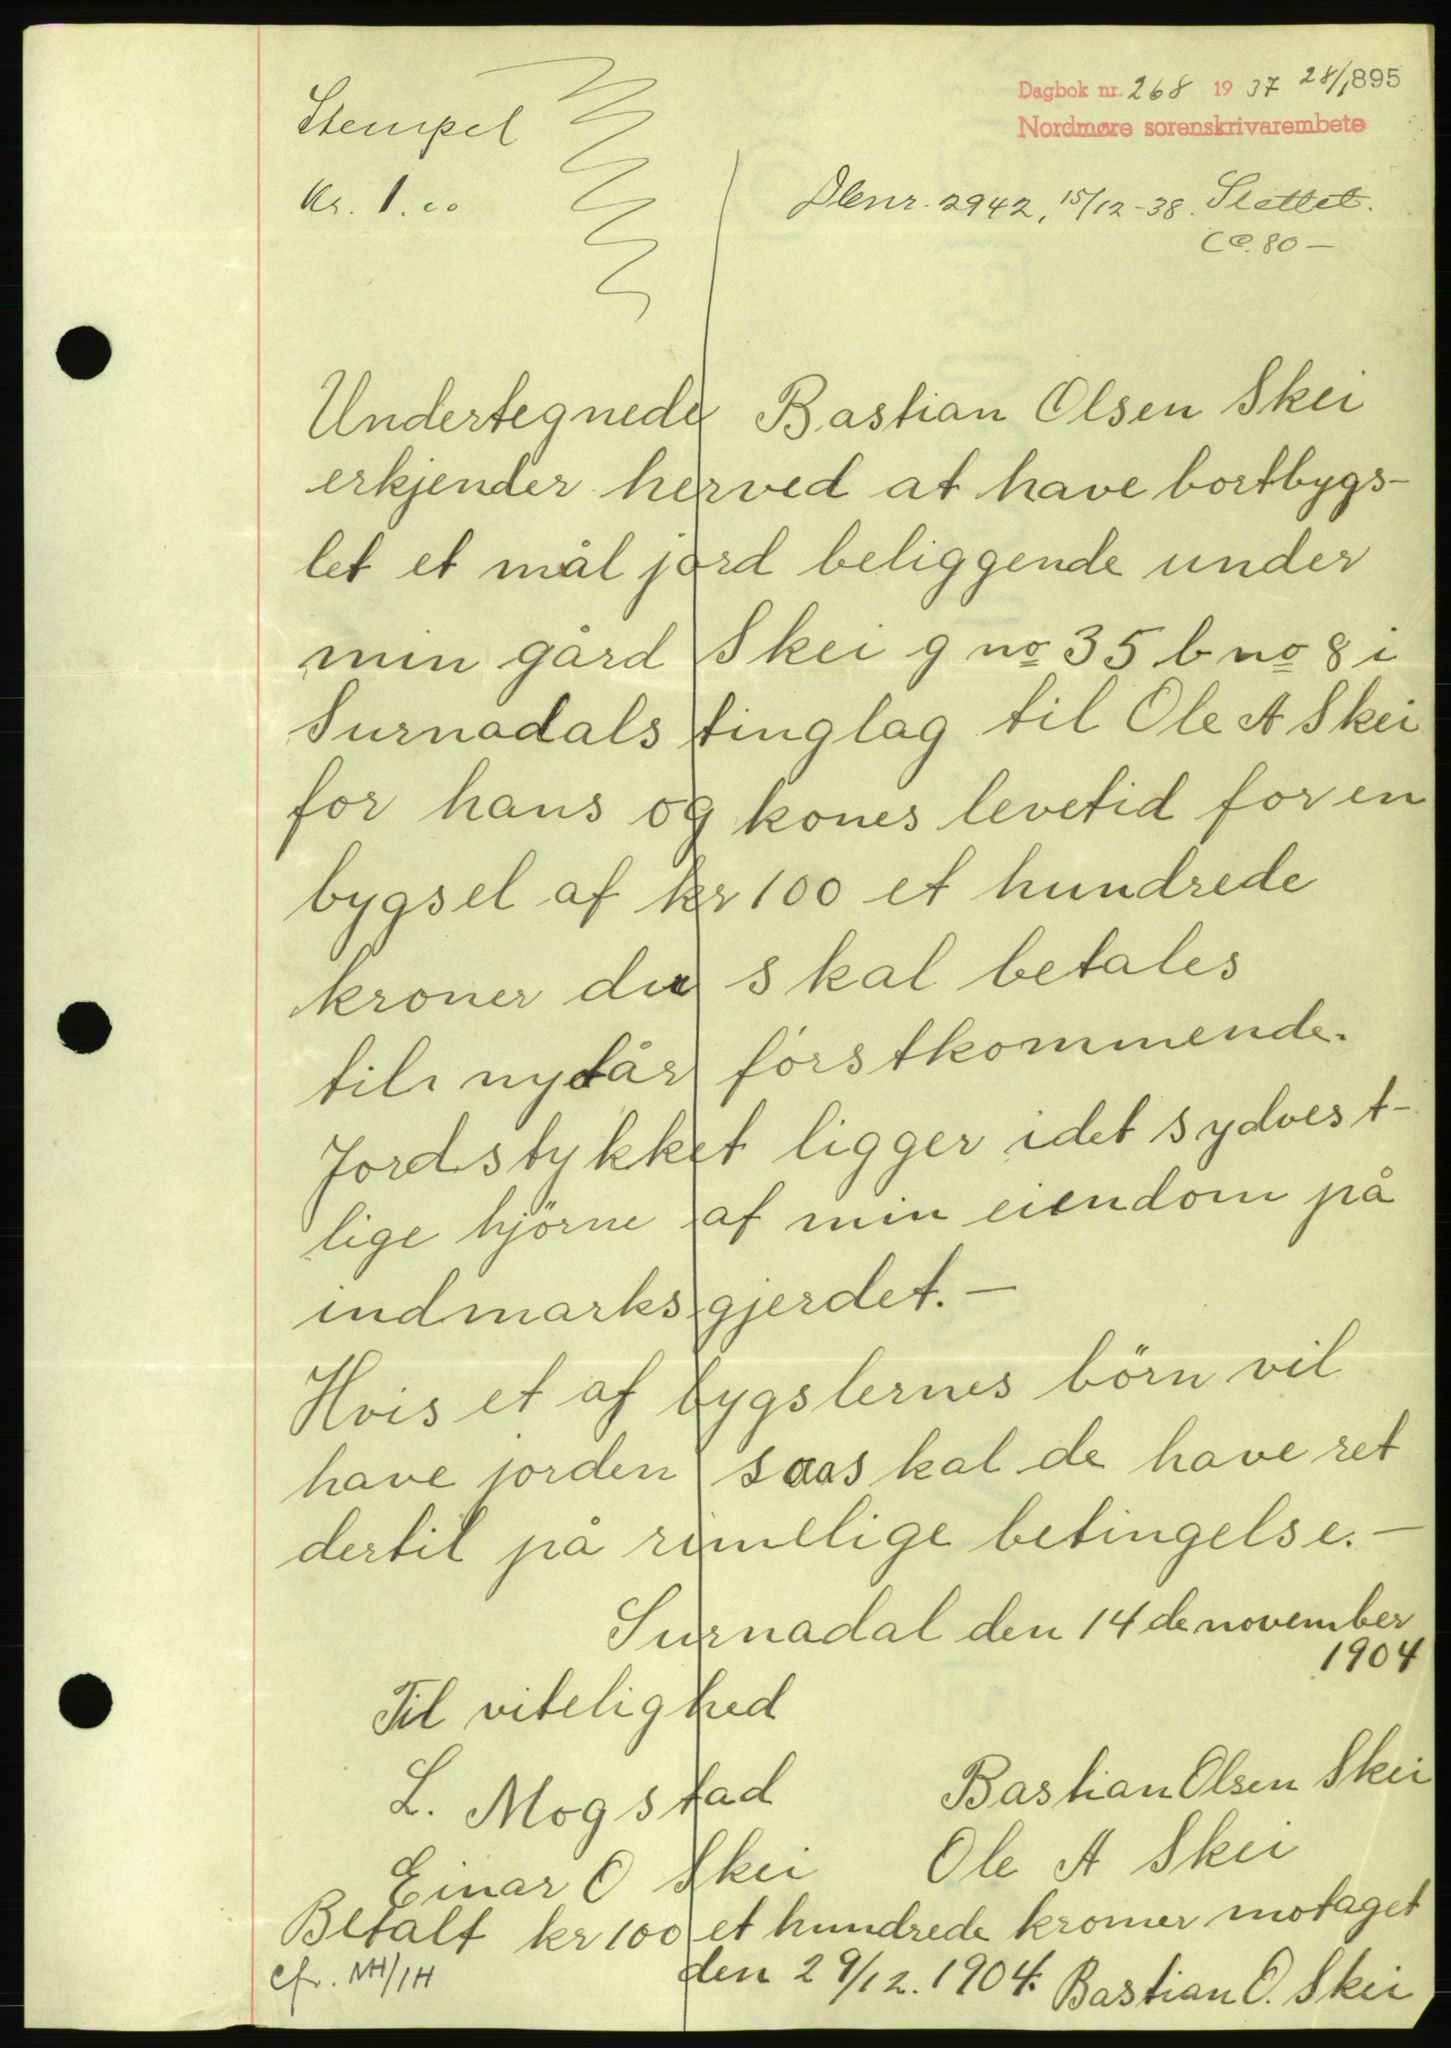 Dagbok nr. 268 1937 28/1 895
Nordmøre sorenskrivarembete
Stempel
Kr. 1.00
Dbnr. 2942, 15/12-38. Slettet.
80 —
Undertegnede Bastian Olsen Skei
erkjender herved at have bortbygs-
let et mål jord beliggende under
min gård Skei g no 35 b no 8 i
Surnadals tinglag til Ole A Skei
for hans og kones levetid for en
bygsel af kr 100 et hundrede
kroner der skal betales
til nytår förstkommende.
Jordstykket ligger i det sydvest-
lige hjörne af min eiendom på
indmarksgjerdet. —
Hvis et af bygslernes börn vil
have jorden saa skal de have ret
dertil på rimelige betingelse. —
Surnadal den 14 de november
1904
Til vitelighed
L. Mogstad Bastian Olsen Skei
Einar O Skei Ole A Skei
Betalt kr 100 et hundrede kroner motaget
den 29/12. 1904. Bastian O. Skei
cfr. NH/IH